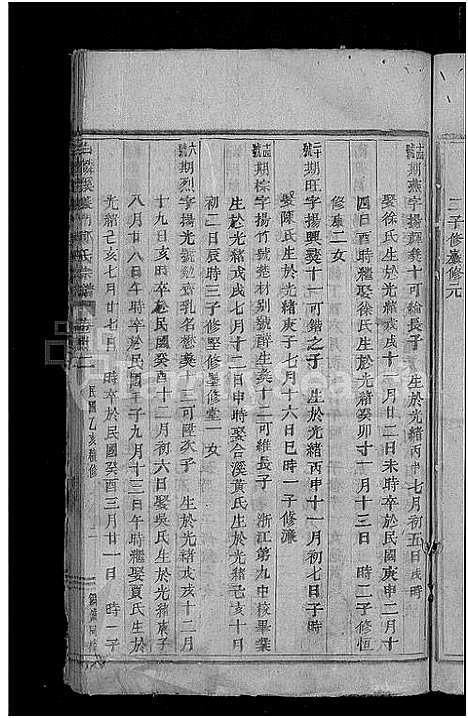 二子修養修元
期燕字揚 羙十可綸長子 生於光緒丙申七月初五日戌時
娶徐氏生於光緒戊戌十一月廿二日未時卒於民國庚申二月十
四日酉時繼娶徐氏生於光緒癸卯十一月十三日 時二子修恒
修 二女
期旺字揚興羙十一可鍇之子 生於光緒丙申十一月初七日子時
娶陳氏生於光緒庚子七月十六日巳時一子修濂
期棕字揚竹號巷材别號醉生羙十二可維長子 浙江第九中校畢業
生於光緒戊戌七月十二日申時娶合溪黃氏生於光緒己亥十月
初二日辰時三子修堅修 修堂一女
期烈字揚光號勲齊乳名懋羙十三可 次子 生於光緒戊戌十二月
十九日亥時卒於民國癸酉十二月初六日娶吳氏生於光緒庚子
八月廿八日午時卒於民國壬子九月十三日午時繼娶賈氏生於
光緒己亥七月廿七日 時卒於民國癸酉三月廿一日 時一子
民國乙亥續修